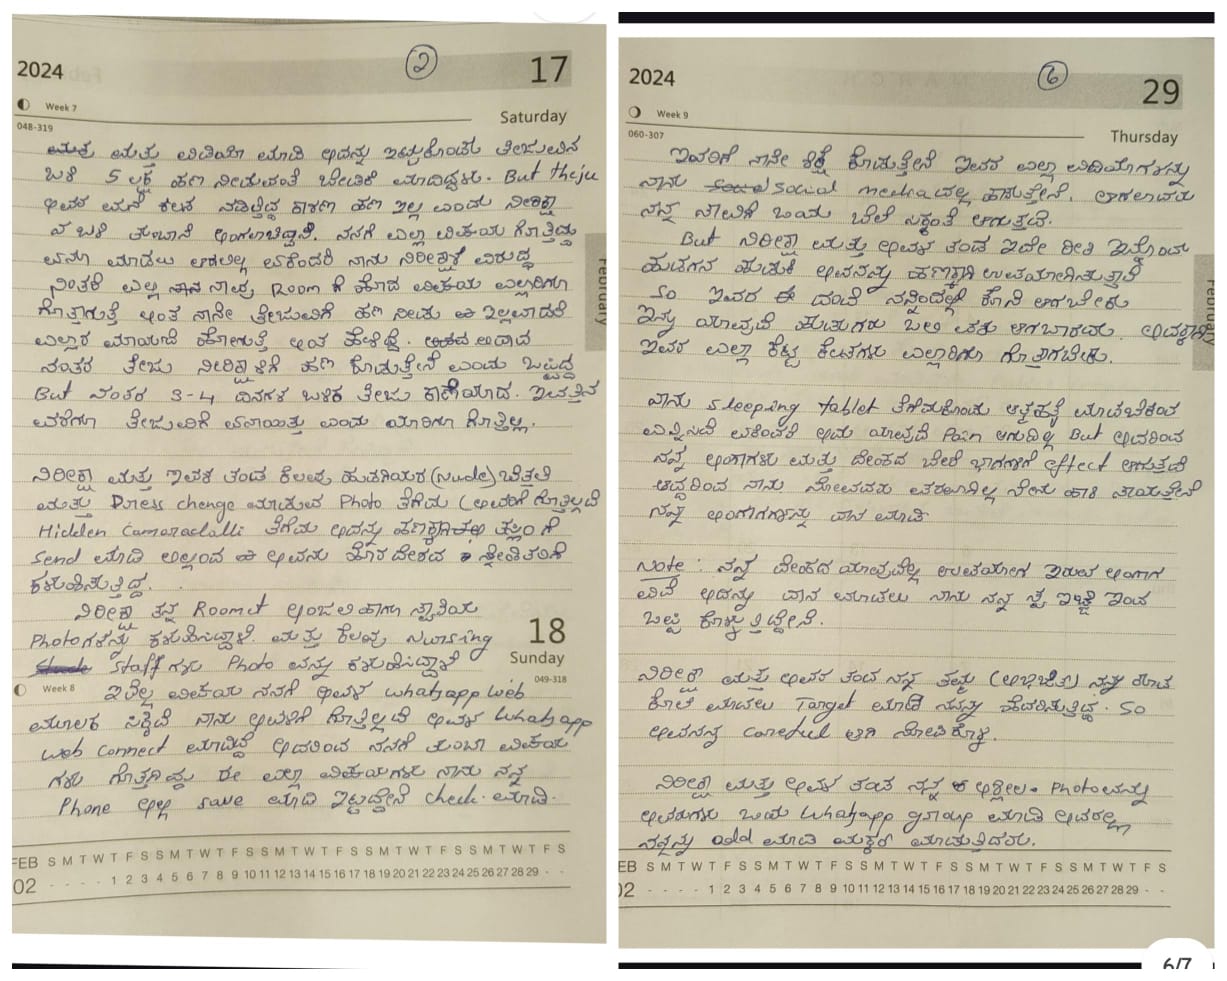 2024
2
17
Week 7
Saturday
048-319
ಮತ್ತು ವಿಡಿಯೋ ಮಾಡಿ ಅದನ್ನು ಇಟ್ಟುಕೊಂಡು ತೇಜುವಿನ
ಬಳಿ 5 ಲಕ್ಷ ಹಣ ನೀಡುವಂತೆ ಬೇಡಿಕೆ ಮಾಡಿದ್ದಳು. But theju
ಅವರ ಮನೆ ಕೆಲಸ ನಡಿತ್ತಿದ್ದ ಕಾರಣ ಹಣ ಇಲ್ಲ ಎಂದು ನಿರೀಕ್ಷಾ
ಬಳಿ ತುಂಬಾನೆ ಅಂಗಲಾಚಿದ್ದಾನೆ. ನನಗೆ ಎಲ್ಲಾ ವಿಷಯ ಗೊತ್ತಿದ್ದು
ಏನೂ ಮಾಡಲು ಆಗಲಿಲ್ಲ ಏಕೆಂದರೆ ನಾನು ನಿರೀಕ್ಷಾಳ ವಿರುದ್ಧ
ನಿಂತರೆ ಎಲ್ಲಿ ನಾವು Room ಗೆ ಹೋದ ವಿಷಯ ಎಲ್ಲರಿಗೂ
ಗೊತ್ತಾಗುತ್ತೆ ಅಂತ ನಾನೇ ತೇಜುವಿಗೆ ಹಣ ನೀಡು ಇಲ್ಲವಾದರೆ
ಎಲ್ಲಾರ ಮಾರ್ಯಾದೆ ಹೋಗುತ್ತೆ ಅಂತ ಹೇಳಿದ್ದೆ. ಅದಾದ
ನಂತರ ತೇಜು ನಿರೀಕ್ಷಾಳಿಗೆ ಹಣ ಕೊಡುತ್ತೇನೆ ಎಂದು ಒಪ್ಪಿದ್ದ
But ನಂತರ 3-4 ದಿನಗಳ ಬಳಿಕ ತೇಜು ಕಾಣೆಯಾದ. ಇವತ್ತಿನ
ವರೆಗೂ ತೇಜುವಿಗೆ ಏನಾಯಿತು ಎಂದು ಯಾರಿಗೂ ಗೊತ್ತಿಲ್ಲ.
ನಿರೀಕ್ಷಾ ಮತ್ತು ಇವಳ ತಂಡ ಕೆಲವು ಹುಡಗಿಯರ (Nude) ಬೆತ್ತಲೆ
ಮತ್ತು Dress chenge ಮಾಡುವ Photo ತೆಗೆದು (ಅವರಿಗೆ ಗೊತ್ತಿಲ್ಲದೆ
Hidden Camaradalli ತೆಗೆದು ಅದನ್ನು ಹಣಕ್ಕಾಗಿ ಗೆ
Send ಮಾಡಿ ಅಲ್ಲಿಂದ ಅವನು ಹೊರ ದೇಶದ ಸ್ನೇಹಿತರಿಗೆ
ಕಳುಹಿಸುತ್ತಿದ್ದ.
ನಿರೀಕ್ಷಾ ತನ್ನ Roomet ಅಂಜಲಿ ಹಾಗೂ ಸ್ವಾತಿಯ
Photoಗಳನ್ನು ಕಳುಹಿಸಿದ್ದಾಳೆ. ಮತ್ತು ಕೆಲವು Nursing
Staffಗಳು Photo ವನ್ನು ಕಳುಹಿಸಿದ್ದಾಳೆ
18
Sunday
049-318
Week 8
ಇದೆಲ್ಲ ವಿಷಯ ನನಗೆ ಅವಳ whatsapp web
ಮೂಲಕ ಸಿಕ್ಕಿದೆ ನಾನು ಅವಳಿಗೆ ಗೊತ್ತಿಲ್ಲದೆ ಅವಳ Whatsapp
web connect ಮಾಡಿದ್ದೆ ಅದರಿಂದ ನನಗೆ ತುಂಬಾ ವಿಷಯ
ಗಳು ಗೊತ್ತಾಗಿದ್ದು ಈ ಎಲ್ಲಾ ವಿಷಯಗಳು ನಾನು ನನ್ನ
Phone ಅಲ್ಲಿ save ಮಾಡಿ ಇಟ್ಟಿದ್ದೇನೆ check ಮಾಡಿ.
FEB S M T W T F S S M T W T F S S M T W T F S S M T W T F S S M T W T F S
02 - - - - 1 2 3 4 5 6 7 8 9 10 11 12 13 14 15 16 17 18 19 20 21 22 23 24 25 26 27 28 29 - -
February
2024
6
29
Week 9
Thursday
060-307
ಇವರಿಗೆ ನಾನೇ ಶಿಕ್ಷೆ ಕೊಡುತ್ತೇನೆ ಇವರ ಎಲ್ಲಾ ವಿಡಿಯೋಗಳನ್ನು
ನಾನು Social mediaದಲ್ಲಿ ಹಾಕುತ್ತೇನೆ. ಆಗಲಾದರು
ನನ್ನ ಸಾವಿಗೆ ಒಂದು ಬೆಲೆ ಸಿಕ್ಕಂತೆ ಆಗುತ್ತದೆ.
But ನಿರೀಕ್ಷಾ ಮತ್ತು ಅವಳ ತಂಡ ಇದೇ ರೀತಿ ಇನ್ನೊಂದು
ಹುಡಗನ ಹುಡುಕಿ ಅವನನ್ನು ಹಣಕ್ಕಾಗಿ ಉಪಯೋಗಿಸುತ್ತಾರೆ
So ಇವರ ಈ ದಂದೆ ನನ್ನಿಂದಲ್ಲೇ ಕೊನೆ ಆಗಬೇಕು
ಇನ್ನು ಯಾವುದೆ ಹುಡುಗರು ಬಲಿ ಪಶು ಆಗಬಾರದು. ಅದಕ್ಕಾಗಿ
ಇವರ ಎಲ್ಲಾ ಕೆಟ್ಟ ಕೆಲಸಗಳು ಎಲ್ಲಾರಿಗೂ ಗೊತ್ತಾಗಬೇಕು.
ನಾನು Sleeping tablet ತೆಗೆದುಕೊಂಡು ಆತ್ಮಹತ್ಯೆ ಮಾಡಬೇಕೆಂದು
ಎನ್ನಿಸಿದೆ ಏಕೆಂದರೆ ಅದು ಯಾವುದೆ Pain ಆಗುದಿಲ್ಲ But ಅದರಿಂದ
ನನ್ನ ಅಂಗಾಗಳು ಮತ್ತು ದೇಹದ ಬೇರೆ ಭಾಗಗಳಿಗೆ effect ಆಗುತ್ತದೆ
ಆದ್ದರಿಂದ ನಾನು ನೋವಾದರು ಪರವಾಗಿಲ್ಲ ನೇಣು ಹಾಕಿ ಸಾಯುತ್ತೇನೆ
ನನ್ನ ಅಂಗಾಗಗಳನ್ನು ದಾನ ಮಾಡಿ
Note : ನನ್ನ ದೇಹದ ಯಾವುದೆಲ್ಲ ಉಪಯೋಗ ಇರುವ ಅಂಗಾಗ
ವಿದೆ ಅದನ್ನು ದಾನ ಮಾಡಲು ನಾನು ನನ್ನ ಸ್ವ ಇಚ್ಛೆ ಇಂದ
ಒಪ್ಪಿ ಕೊಳ್ಳುತ್ತಿದ್ದೇನೆ.
ನಿರೀಕ್ಷಾ ಮತ್ತು ಅವಳ ತಂಡ ನನ್ನ ತಮ್ಮ (ಅಭಿಜಿತ)
ಕೊಲೆ ಮಾಡಲು Target ಮಾಡಿ ನನ್ನನ್ನು ಹೆದರಿಸುತ್ತಿದ್ದ. So
ಅವನನ್ನು careful ಆಗಿ ನೋಡಿಕೊಳ್ಳಿ.
ನಿರೀಕ್ಷಾ ಮತ್ತು ಅವಳ ತಂಡ ನನ್ನ ಅಶ್ಲೀಲ Photoವನ್ನು
ಅವರುಗಳು ಒಂದು Whatsapp group ಮಾಡಿ ಅದರಲ್ಲಿ
ನನ್ನನ್ನು add ಮಾಡಿ ಮಾಡುತ್ತಿದರು.
FEB S M T W T F S S M T W T F S S M T W T F S S M T W T F S S M T W T F S
02 - - - - 1 2 3 4 5 6 7 8 9 10 11 12 13 14 15 16 17 18 19 20 21 22 23 24 25 26 27 28 29 - -
February
6/7